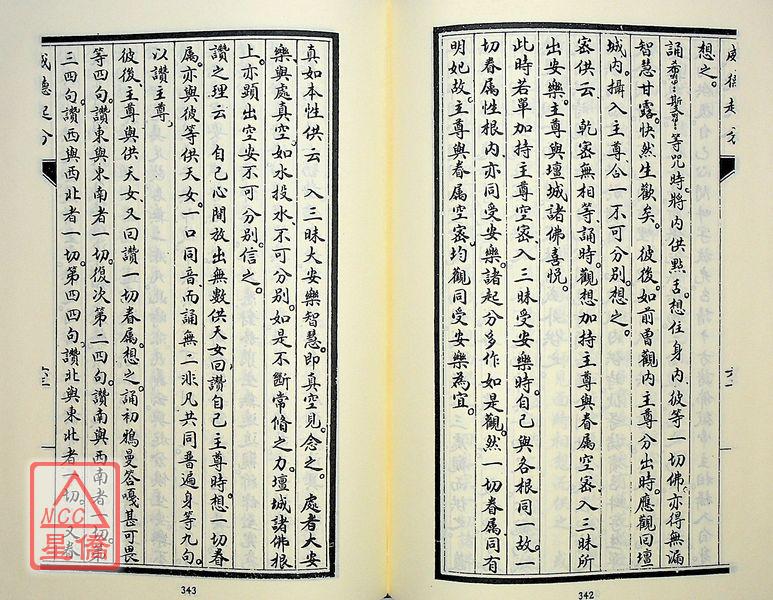 威德起分
想之。
等咒時。將內供點舌。想住身內。彼等一切佛。亦得無漏
智慧甘露。快然生歡矣。 彼後。如前曾觀內主尊分出時。應觀回壇
城內。攝入主尊合一不可分別。想之。
密供云 乾密無相等誦時。觀想加持主尊與眷屬空密。入三昧所
出安樂。主尊與壇城諸佛喜悅。
此時若單加持主尊空密。入三昧受安樂時。自己與各根同一故。一
切眷屬性根內。亦同受安樂。諸起分多作如是觀。然一切眷屬同有
明妃故。主尊與眷屬空密。均觀同受安樂為宜。
六二
342
真如本性供云 入三昧大安樂智慧。即真空見。念之。 處者大安
樂與處真空。如水投水不可分別。如是不斷常脩之力。壇城諸佛根
上。亦顯出空安不可分別。信之。
讚之理云 自己心間放出無數供天女。回讚自己主尊時。想一切眷
屬。亦與彼等供天女。一口同音。而誦無二非凡共同普遍身等九句。
以讚主尊。
彼後。主尊與供天女。又回讚一切眷屬。想之。誦初鴉曼答嘎甚可畏
等四句。讚東與東南者一切。復次第二四句。讚南與西南者一切。第
三四句。讚西與西北者一切。第四四句。讚北與東北者一切。又眷
威德起分
六三
343
NCC
星僑